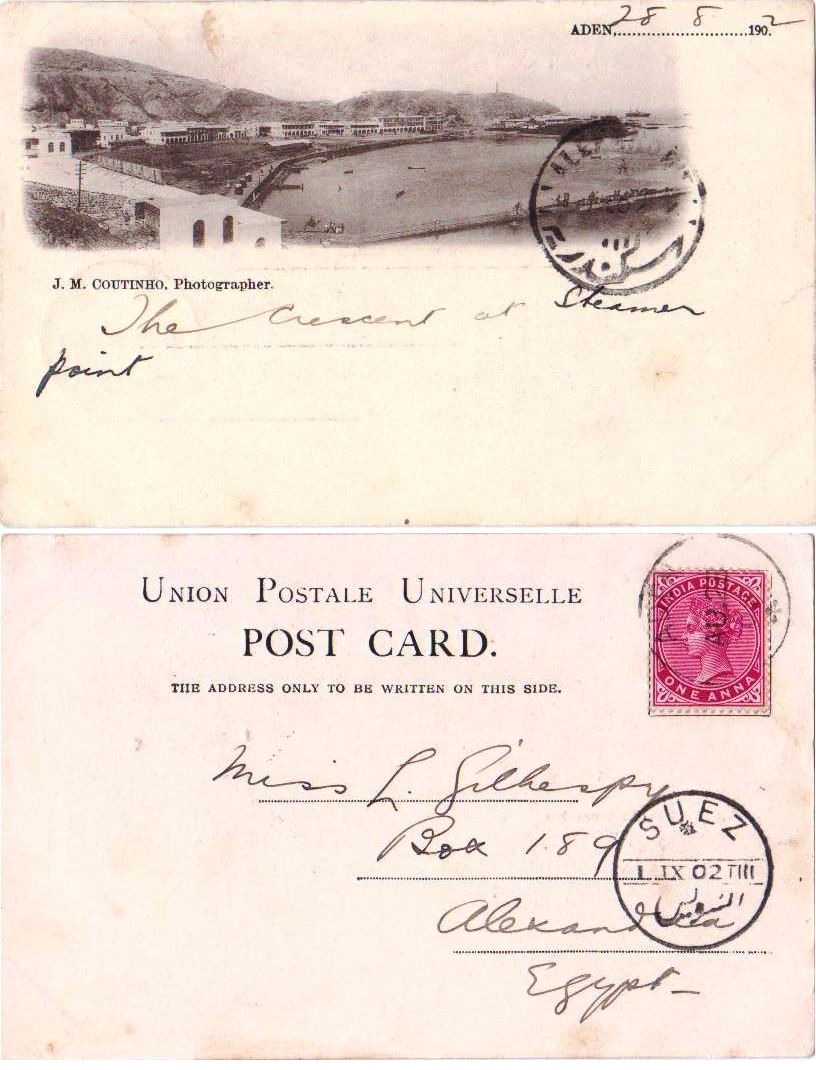 ADEN, 28 8 1902
ALEX
J. M. COUTINHO, Photographer.
The Crescent at Steamer
point
UNION POSTALE UNIVERSELLE
POST CARD.
THE ADDRESS ONLY TO BE WRITTEN ON THIS SIDE.
INDIA POSTAGE
ONE ANNA
Miss L. Gilhespy
Box 189
Alexandria
Egypt
SUEZ
1 IX 02 TIII
السويس